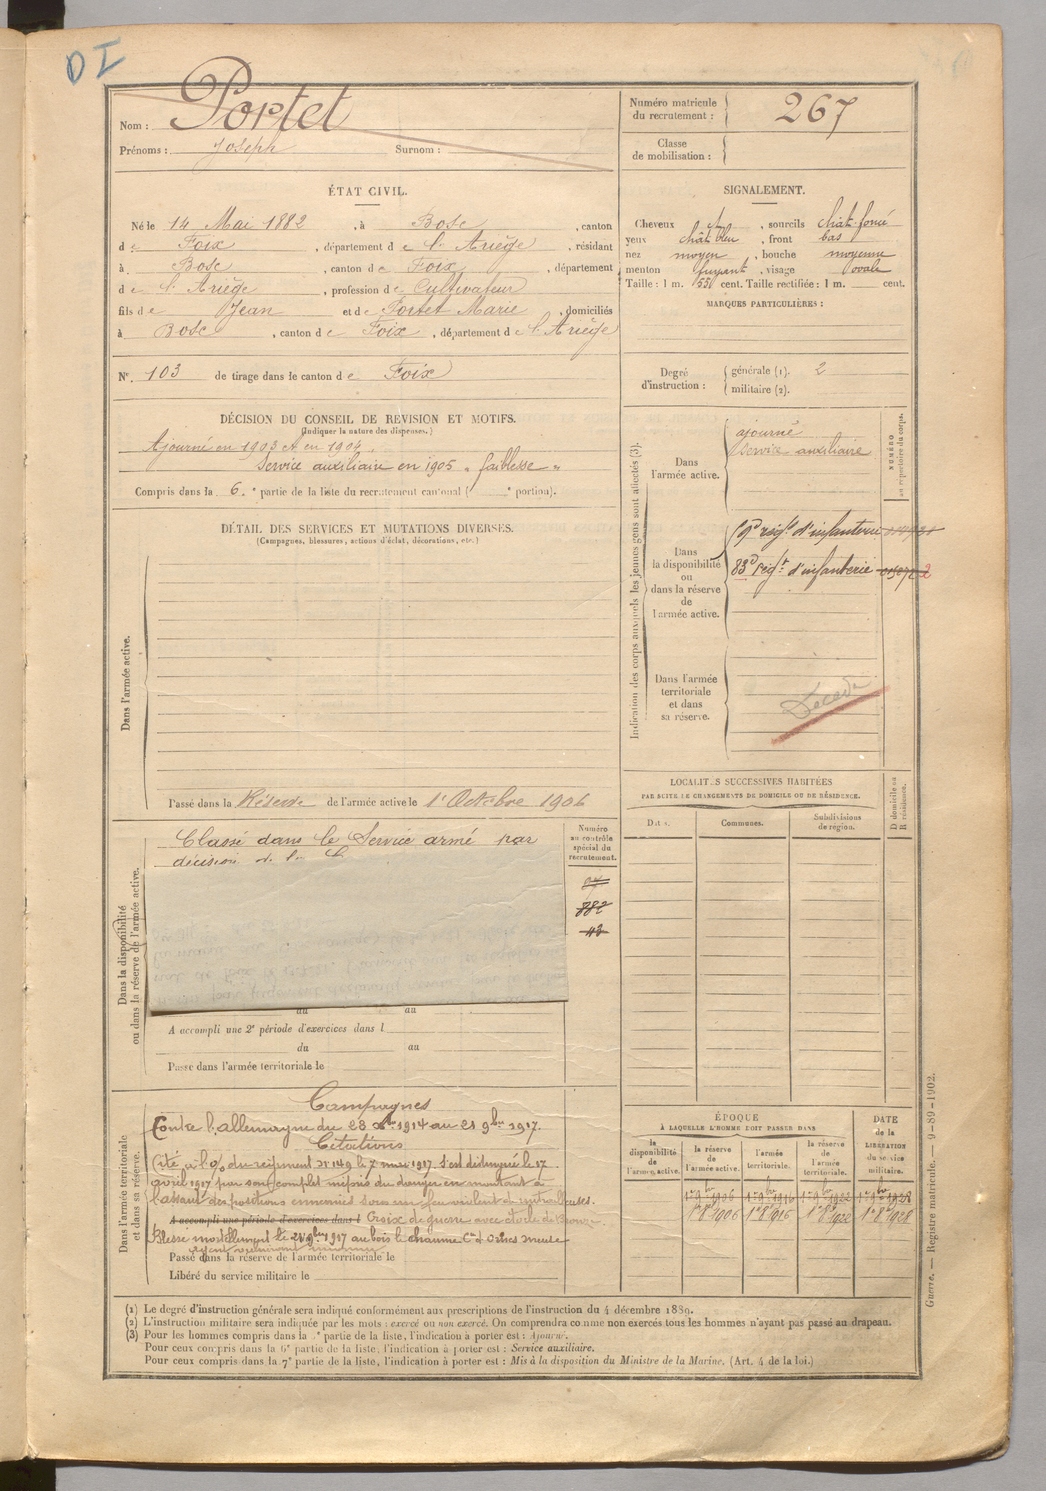 D I
Nom : Portet
Prénoms : Joseph Surnom :
Numéro matricule du recrutement : 267
Classe de mobilisation :
ÉTAT CIVIL.
Né le 14 Mai 1882, à Bosc, canton
de Foix, département de l'Ariège, résidant
à Bosc, canton de Foix, département
de l'Ariège, profession de Cultivateur
fils de Jean et de Portet Marie, domiciliés
à Bosc, canton de Foix, département de l'Ariège
N° 103 de tirage dans le canton de Foix
SIGNALEMENT.
Cheveux et, sourcils chât. foncé
yeux chât bleu, front bas
nez moyen, bouche moyenne
menton fuyant, visage ovale
Taille : 1 m. 55 cent. Taille rectifiée : 1 m. cent.
MARQUES PARTICULIÈRES :
Degré d'instruction : générale (1). 2
militaire (2).
DÉCISION DU CONSEIL DE REVISION ET MOTIFS.
(Indiquer la nature des dispenses.)
Ajourné en 1903 et en 1904.
Service auxiliaire en 1905 "faiblesse"
Compris dans la 6e partie de la liste du recrutement cantonal ( e portion).
DÉTAIL DES SERVICES ET MUTATIONS DIVERSES.
(Campagnes, blessures, actions d'éclat, décorations, etc.)
Dans l'armée active.
Passé dans la Réserve de l'armée active le 1r Octobre 1906
Indication des corps auxquels les jeunes gens sont affectés (3).
NUMÉRO au répertoire du corps.
Dans l'armée active.
ajourné
service auxiliaire
Dans la disponibilité ou dans la réserve de l'armée active.
59e régt d'infanterie
83e régt d'infanterie
Dans l'armée territoriale et dans sa réserve.
Décédé
LOCALITÉS SUCCESSIVES HABITÉES
PAR SUITE DE CHANGEMENTS DE DOMICILE OU DE RÉSIDENCE.
Dates. Communes. Subdivisions de région. D domicile ou R résidence.
Dans la disponibilité ou dans la réserve de l'armée active.
Classé dans le Service armé par
décision de la
Numéro au contrôle spécial du recrutement.
882
du au
A accompli une 2e période d'exercices dans l
du au
Passé dans l'armée territoriale le
Dans l'armée territoriale et dans sa réserve.
Campagnes
Contre l'allemagne du 23 Xbre 1914 au 21 9bre 1917.
Citations
Cité à l'O/ du régiment N° 149 le 7 mai 1917. S'est distingué le 17
avril 1917 par son complet mépris du danger en montant à
l'assaut des positions ennemies sous un feu violent de mitrailleuses.
A accompli une période d'exercices dans l Croix de guerre avec étoile de Bronze.
Blessé mortellement le 21 9bre 1917 au bois le chaume Cne d'Ornes Meuse
Passé dans la réserve de l'armée territoriale le
Libéré du service militaire le
ÉPOQUE
À LAQUELLE L'HOMME DOIT PASSER DANS
la disponibilité de l'armée active. la réserve de l'armée active. l'armée territoriale. la réserve de l'armée territoriale. DATE de la LIBÉRATION du service militaire.
1r 9br 1906 1r 9br 1916 1r 9br 1922 1r 9br 1928
1r 8e 1906 1r 8e 1916 1r 8e 1922 1r 8e 1928
(1) Le degré d'instruction générale sera indiqué conformément aux prescriptions de l'instruction du 4 décembre 1889.
(2) L'instruction militaire sera indiquée par les mots : exercé ou non exercé. On comprendra comme non exercés tous les hommes n'ayant pas passé au drapeau.
(3) Pour les hommes compris dans la e partie de la liste, l'indication à porter est : Ajourné.
Pour ceux compris dans la 6e partie de la liste, l'indication à porter est : Service auxiliaire.
Pour ceux compris dans la 7e partie de la liste, l'indication à porter est : Mis à la disposition du Ministre de la Marine. (Art. 4 de la loi.)
Guerre. — Registre matricule. — 9-89-1902.